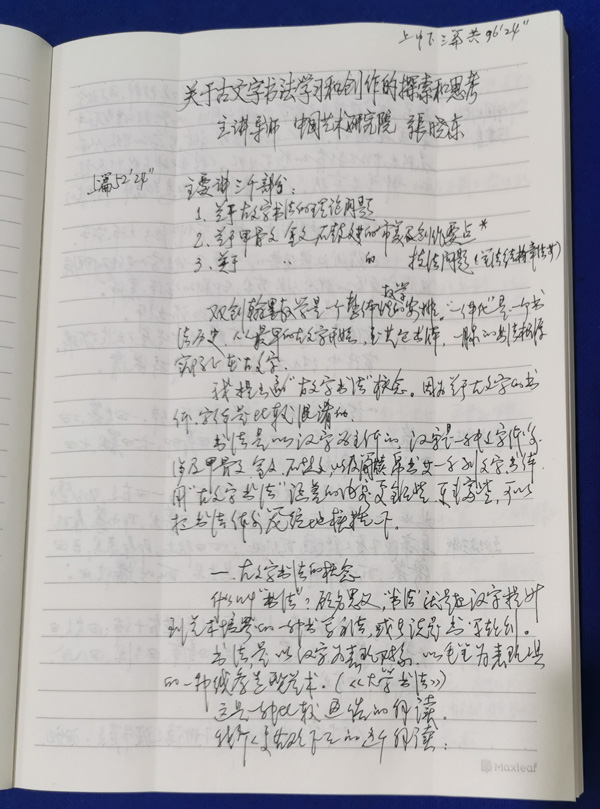 上中下三篇共96'24"
关于古文字书法学习和创作的探索和思考
主讲导师 中国艺术研究院 張晓东
上篇52'24"
主要讲三个部分：
1. 关于古文字书法的理论问题
2. 关于甲骨文 金文 石鼓文的审美及创作要点*
3. 关于 〃 的 技法问题（笔法结构章法等）
双创翰墨教学是一个整体性的教学安排。"一体化"是一个书
法历史，从最早的古文字开始，到其它书体，一脉的书法
实际上在古文字。
我提出了"古文字书法"概念。因为关于古文字的书
体、字体是比较混淆的。
书法是以汉字为主体的，汉字是一种
甲骨文 金文 石鼓文 以及简牍 帛书 一系列文字书体
用"古文字书法"涵盖的内容更 些，更 些，可以
把书法体系 概括下。
一、古文字书法的概念
什么叫"书法"？顾名思义，"书法"就是把汉字提升
到艺术境界的一种书写方法，或者说是书写法则。
书法是以汉字为表现对象，以毛笔为表现工具
的一种线条造型艺术。（《大学书法》）
这是一种比较 的解读。
的这个解读：
Maxleaf